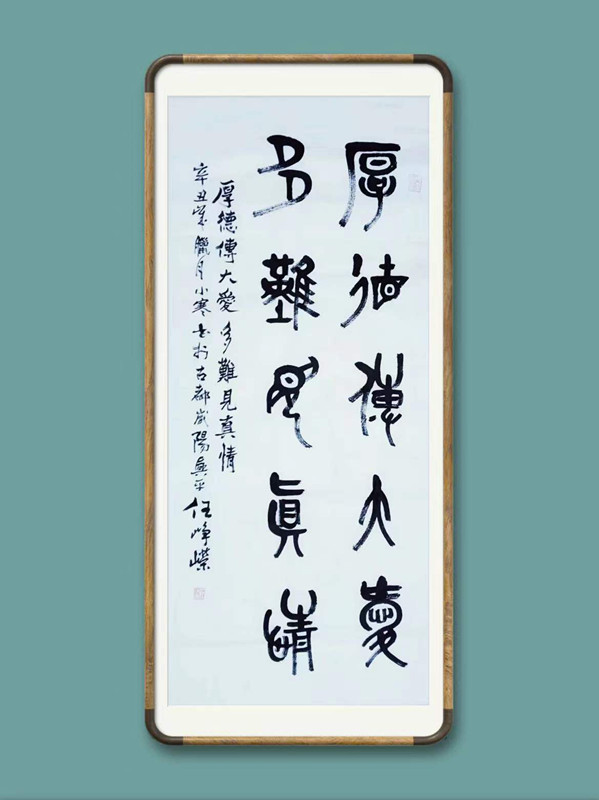 厚德傳大愛
多難見真情
厚德傳大愛多難見真情
辛丑歲臘月小寒書於古都咸陽興平任峥嶸